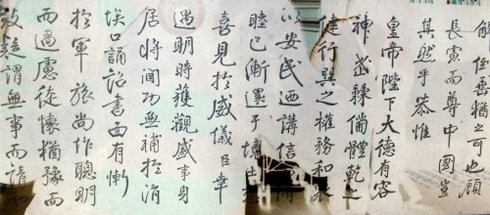 解猶之可也顧
長而尊中國豈
其然乎恭惟
皇帝陛下大德有容
神武體乾之
健行巽之權務和
以安民迺講信
睦已漸還于境土
喜見於威儀臣幸
遇明時獲觀盛事身
居將閫功無補於涓
埃口誦詔書面有慚
於軍旅尚作聰明
而過慮徒懷猶豫而
致疑謂無事而請和